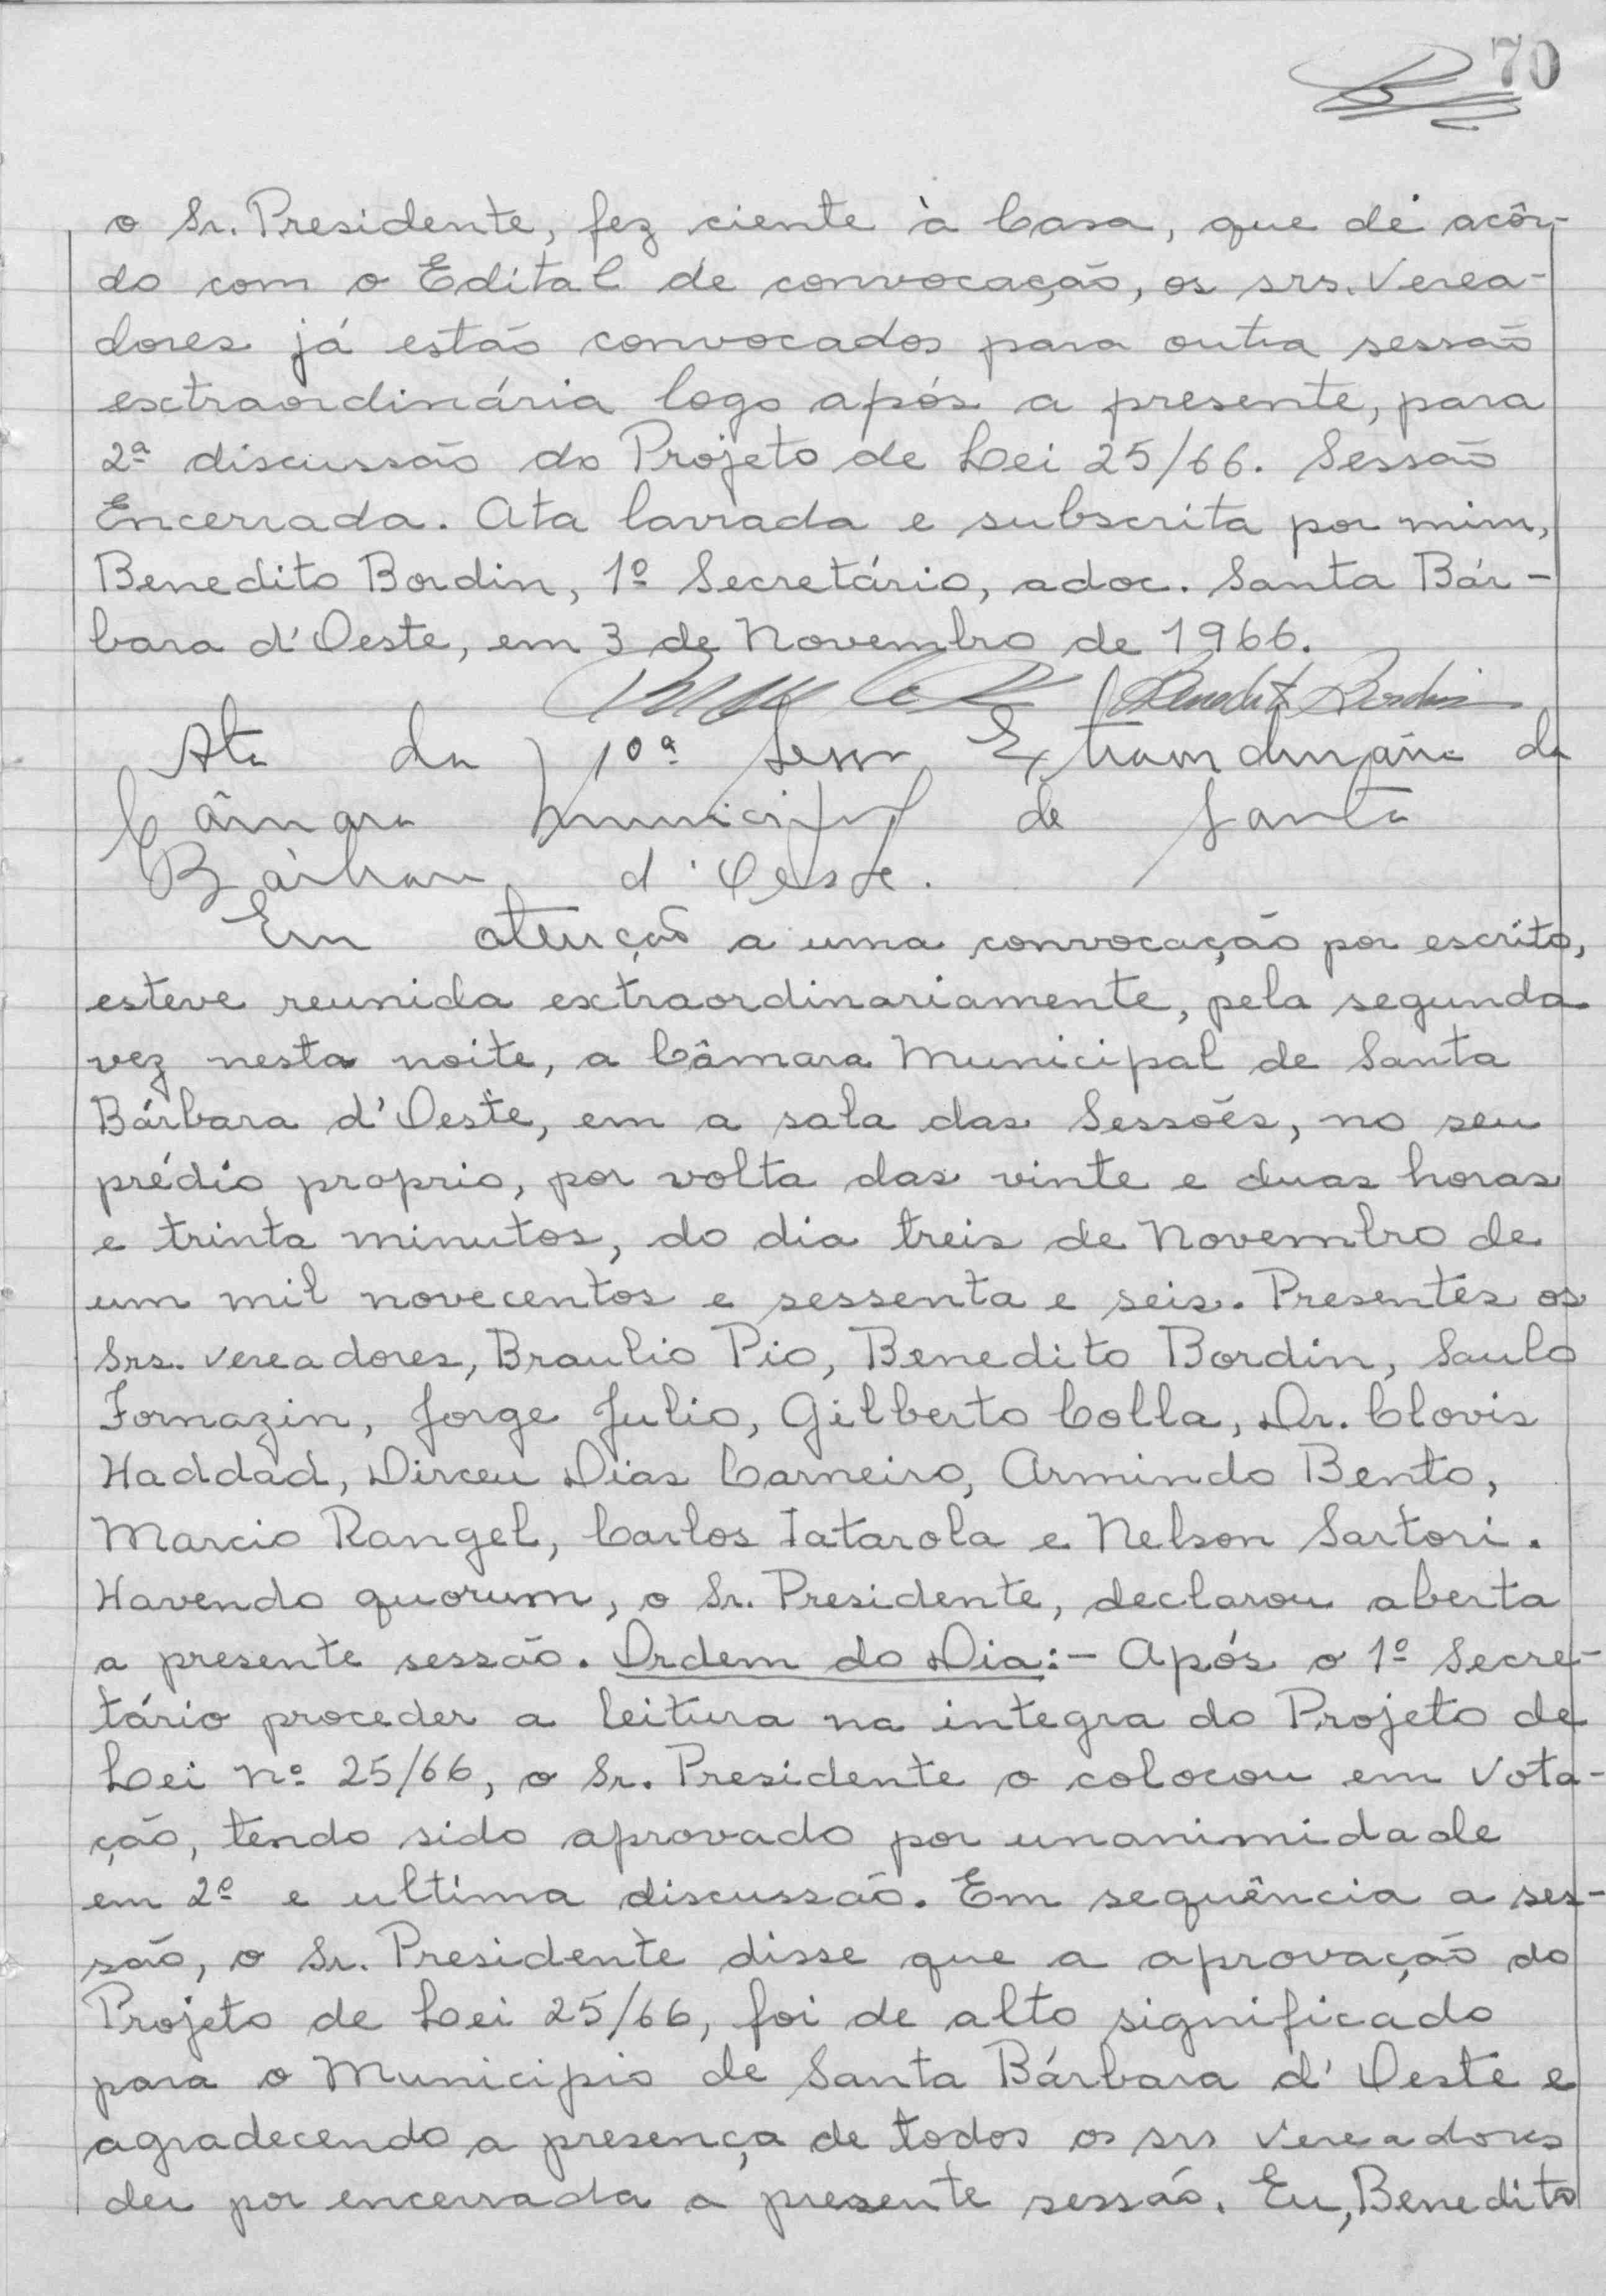 70
o Sr. Presidente, fez ciente à Casa, que de acôr-
do com o Edital de convocação, os srs. Verea-
dores já estão convocados para outra sessão
extraordinária logo após a presente, para
2ª discussão do Projeto de Lei 25/66. Sessão
Encerrada. Ata lavrada e subscrita por mim,
Benedito Bordin, 1º Secretário, adoc. Santa Bár-
bara d'Oeste, em 3 de Novembro de 1966.
Benedito Bordin
Ata da 10ª Sessão Extraordinária da
Câmara Municipal de Santa
Bárbara d'Oeste.
Em atenção a uma convocação por escrito,
esteve reunida extraordinariamente, pela segunda
vez nesta noite, a Câmara Municipal de Santa
Bárbara d'Oeste, em a sala das Sessões, no seu
prédio proprio, por volta das vinte e duas horas
e trinta minutos, do dia treis de Novembro de
um mil novecentos e sessenta e seis. Presentes os
Srs. vereadores, Braulio Pio, Benedito Bordin, Saulo
Fornazin, Jorge Julio, Gilberto Colla, Dr. Clovis
Haddad, Dirceu Dias Carneiro, Armindo Bento,
Marcio Rangel, Carlos Tatarola e Nelson Sartori.
Havendo quorum, o Sr. Presidente, declarou aberta
a presente sessão. Ordem do Dia:- Após o 1º Secre-
tário proceder a leitura na integra do Projeto de
Lei nº 25/66, o Sr. Presidente o colocou em vota-
ção, tendo sido aprovado por unanimidade
em 2º e ultima discussão. Em sequência a ses-
são, o Sr. Presidente disse que a aprovação do
Projeto de Lei 25/66, foi de alto significado
para o Municipio de Santa Bárbara d'Oeste e
agradecendo a presença de todos os srs vereadores
deu por encerrada a presente sessão. Eu, Benedito